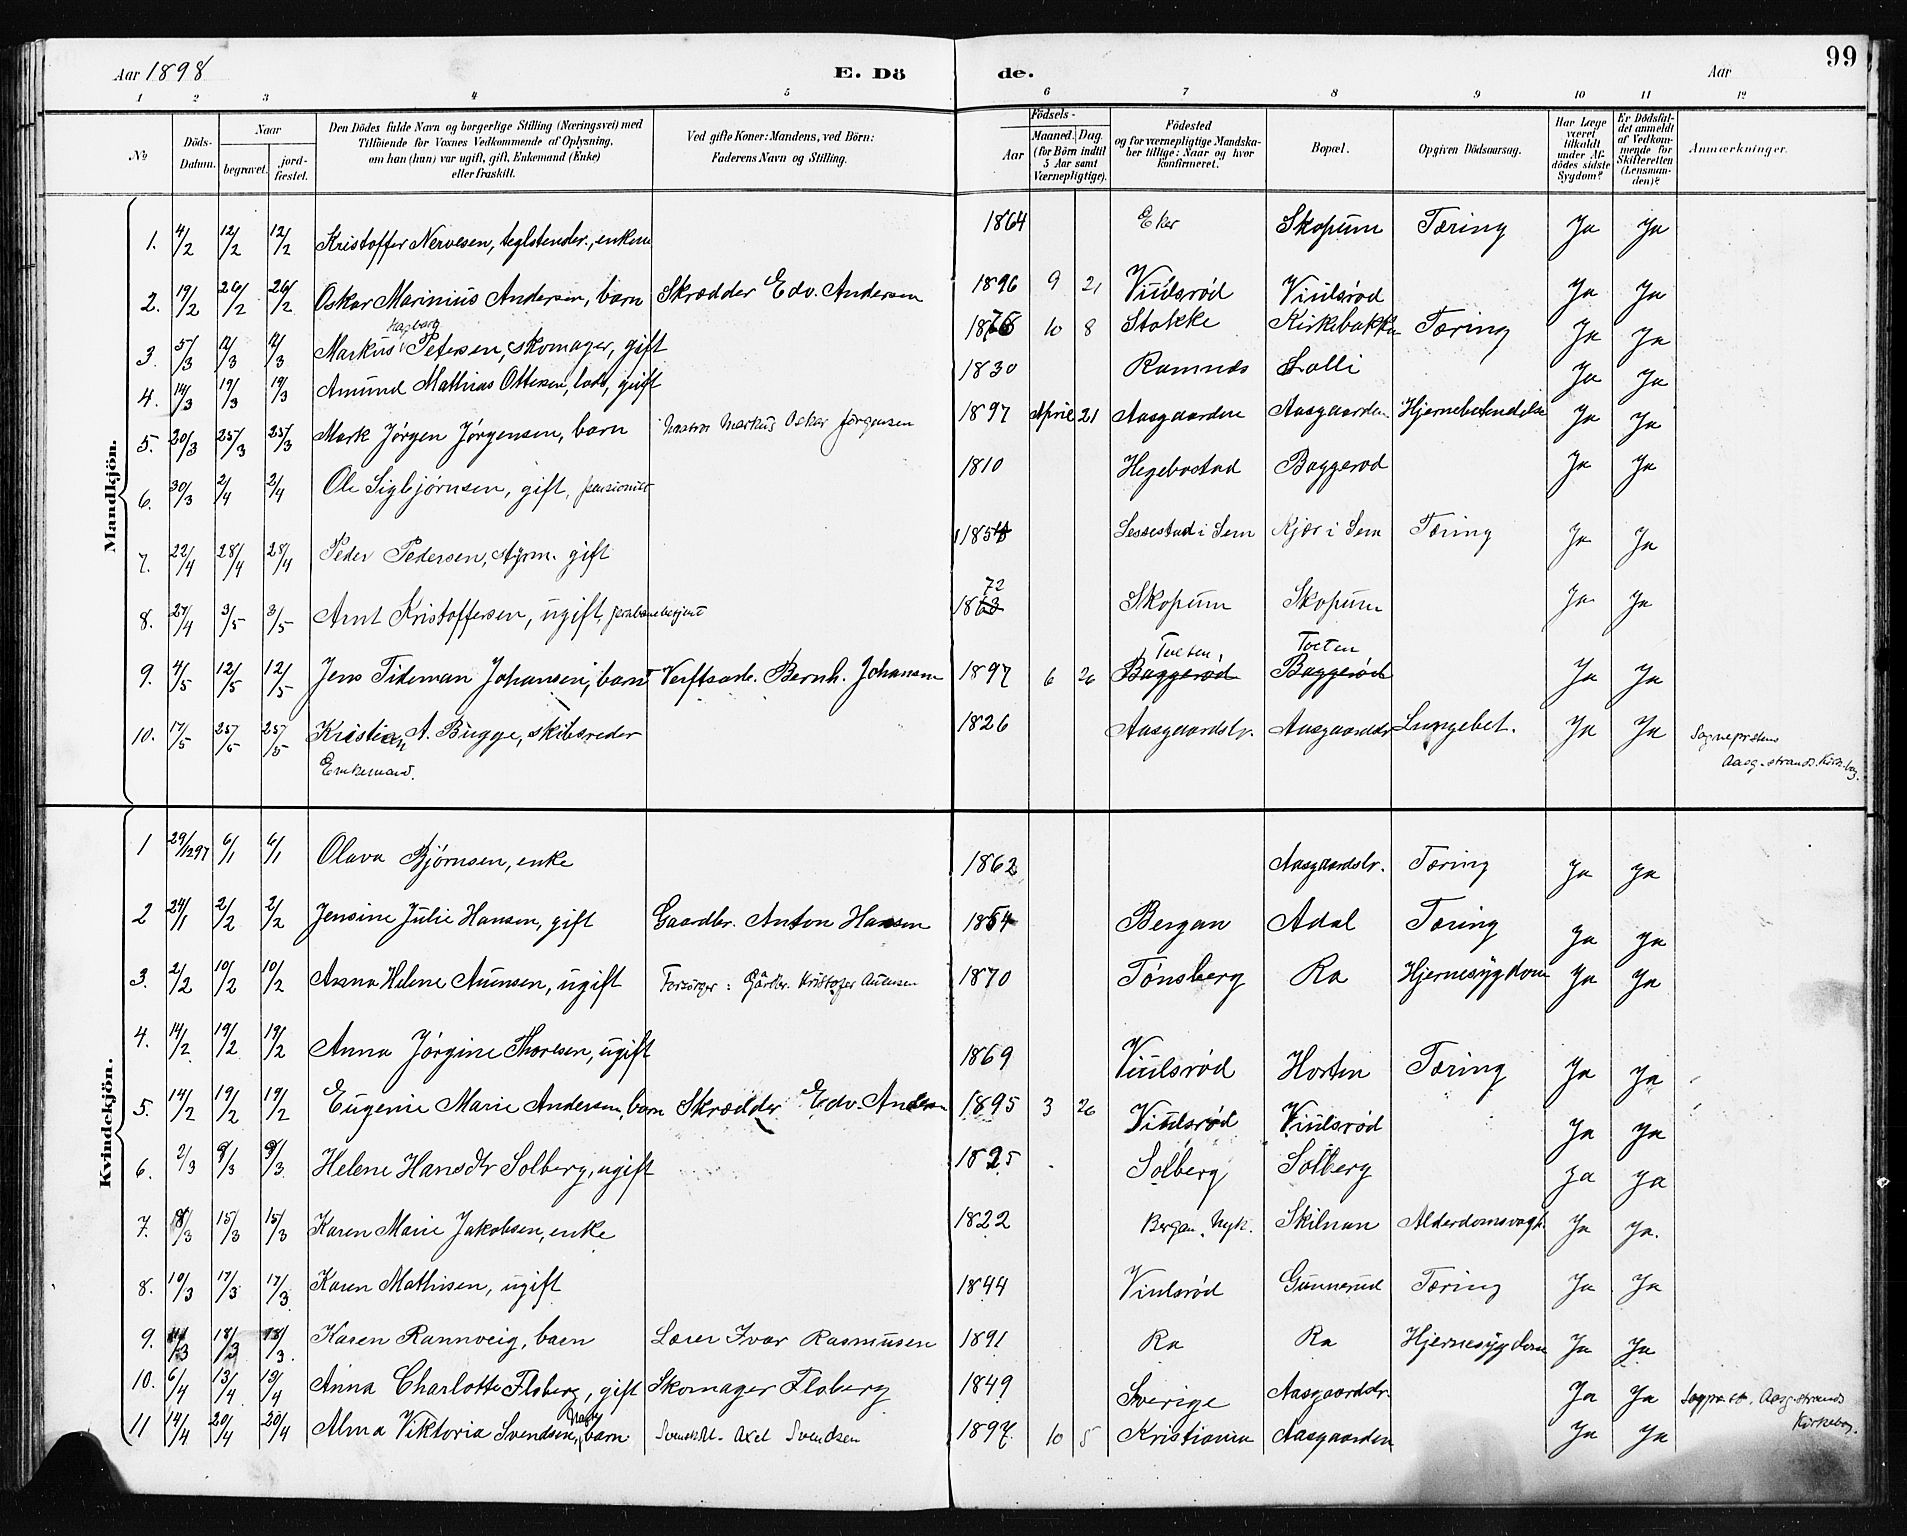 99
Aar 1898 E. Dö de. Aar
1 2 3 4 5 6 7 8 9 10 11 12
№ Döds-Datum. Naar begravet. jord-fæstet. Den Dödes fulde Navn og borgerlige Stilling (Næringsvei) med Tilföiende for Voxnes Vedkommende af Oplysning, om han (hun) var ugift, gift, Enkemand (Enke) eller fraskilt. Ved gifte Koner: Mandens, ved Börn: Faderens Navn og Stilling. Födsels- Aar Maaned. Dag. (for Börn indtil 5 Aar samt Værnepligtige). Födested og for værnepligtige Mandskaber tillige: Naar og hvor konfirmeret. Bopæl. Opgiven Dödsaarsag. Har Læge været tilkaldt under Afdödes sidste Sygdom? Er Dödsfaldet anmeldt af Vedkommende for Skifteretten (Lensmanden)? Anmærkninger.
Mandkjön.
1. 4/2 12/2 12/2 Kristoffer Nervesen, teglstender., enkem 1864 Eker Skopum Tæring Ja Ja
2. 19/2 26/2 26/2 Oskar Marinius Andersen, barn Skrædder Edv. Andersen 1896 9 21 Viulsrød Viulsrød Ja Ja
3. 5/3 12/3 12/3 Markus Hagbarg Petersen, skomager, gift 1875 10 8 Stokke Kirkebakken Tæring Ja Ja
4. 14/3 19/3 19/3 Amund Mathias Ottersen, lods, gift 1830 Ramnæs Lolli Ja Ja
5. 20/3 25/3 25/3 Mark Jørgen Jørgensen, barn Matros Markus Oskar Jørgensen 1897 April 21 Aasgaarden Aasgaarden Hjernebetendelse Ja Ja
6. 30/3 2/4 2/4 Ole Sigbjørnsen, gift, pensionist 1810 Hegebostad Baggerød Ja Ja
7. 22/4 28/4 28/4 Peder Pedersen, styrm. gift 1854 Lessestad i Sem Kjær i Sem Tæring Ja Ja
8. 27/4 3/5 3/5 Arnt Kristoffersen, ugift, jernbanebetjent 1863 72 Skopum Skopum Ja Ja
9. 4/5 12/5 12/5 Jens Tideman Johansen, barn Verftsarb. Bernh. Johansen 1897 6 26 Baggerød Tveten, Baggerød Tveten Ja Ja
10. 17/5 25/5 25/5 Kristian A. Bugge, skibsreder 1826 Aasgaardstr. Aasgaardstr Lungebet. Ja Ja Sogneprstens
Enkemand. Aasg.strands Kirkebog.
Kvindekjön.
1 29/1297 6/1 6/1 Olava Bjørnsen, enke 1862 Aasgaardstr. Tæring Ja Ja
2 24/1 2/2 2/2 Jensine Julie Hansen, gift Gaardbr. Anton Hansen 1854 Bergan Adal Tæring Ja Ja
3. 2/2 10/2 10/2 Anna Helene Auensen, ugift Forsørger: Gårdbr. Kristofer Auensen 1870 Tønsberg Ra Hjernesygdom Ja Ja
4. 14/2 19/2 19/2 Anna Jørgine Thorsen, ugift 1869 Viulsrød Horten Tæring Ja Ja
5. 14/2 19/2 19/2 Eugenie Marie Andersen, barn Skrædder Edv. Andersen 1895 3 26 Viulsrød Viulsrød Ja Ja
6. 2/3 9/3 9/3 Helene Hansdtr Solberg, ugift 1825 Solberg Solberg Ja Ja
7. 8/3 15/3 15/3 Karen Marie Jakobsen, enke 1822 Bergan, Nyk. Skilnan Alderdomsvagh. Ja Ja.
8. 10/3 17/3 17/3 Karen Mathisen, ugift 1844 Viulsrød Gunnerud Tæring Ja Ja
9. 11/3 18/3 18/3 Karen Rannveig, barn Lærer Ivar Rasmussen 1891 Ra Ra Hjernesygdom Ja Ja
10. 6/4 13/4 13/4 Anna Charlotte Floberg, gift Skomager Floberg 1849 Sverige Aasgaardstr. Ja Ja Sogneprst. Aasg.strands
Kirkebog.
11 14/4 20/4 20/4 Alma Viktoria Svendsen, barn Axel Svendsen 1897. 10 5 Kristiania Aasgaarden Ja Ja